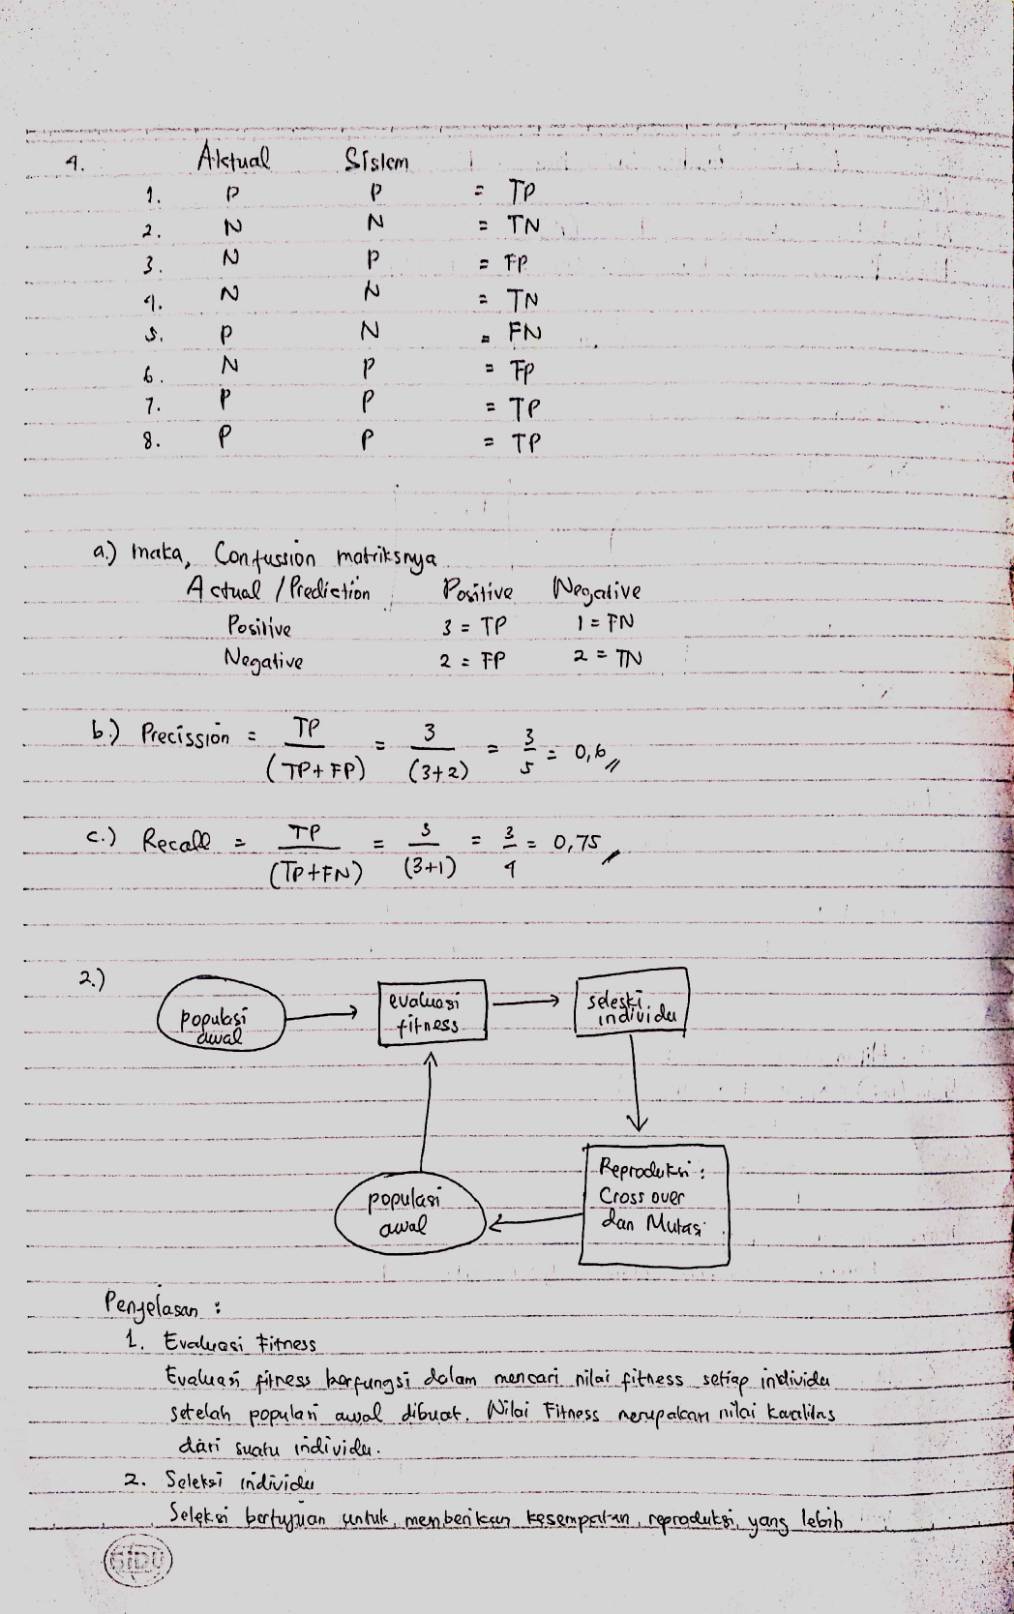 4. Aktual Sistem
1. P P = TP
2. N N = TN
3. N P = FP
4. N N = TN
5. P N = FN
6. N P = FP
7. P P = TP
8. P P = TP
a.) maka, Confussion matriksnya
Actual / Prediction Positive Negative
Positive 3 = TP 1 = FN
Negative 2 = FP 2 = TN
b.) Precission = TP / (TP + FP) = 3 / (3+2) = 3/5 = 0,6
c.) Recall = TP / (TP+FN) = 3 / (3+1) = 3/4 = 0,75
2.)
populasi
awal
evaluasi
fitness
seleski
individu
populasi
awal
Reproduksi :
Cross over
dan Mutasi
Penjelasan :
1. Evaluasi Fitness
Evaluasi fitness berfungsi dalam mencari nilai fitness setiap individu
setelah populasi awal dibuat. Nilai Fitness merupakan nilai kwalitas
dari suatu individu.
2. Seleksi individu
Seleksi bertujuan untuk memberikan kesempatan reproduksi yang lebih
SIDU